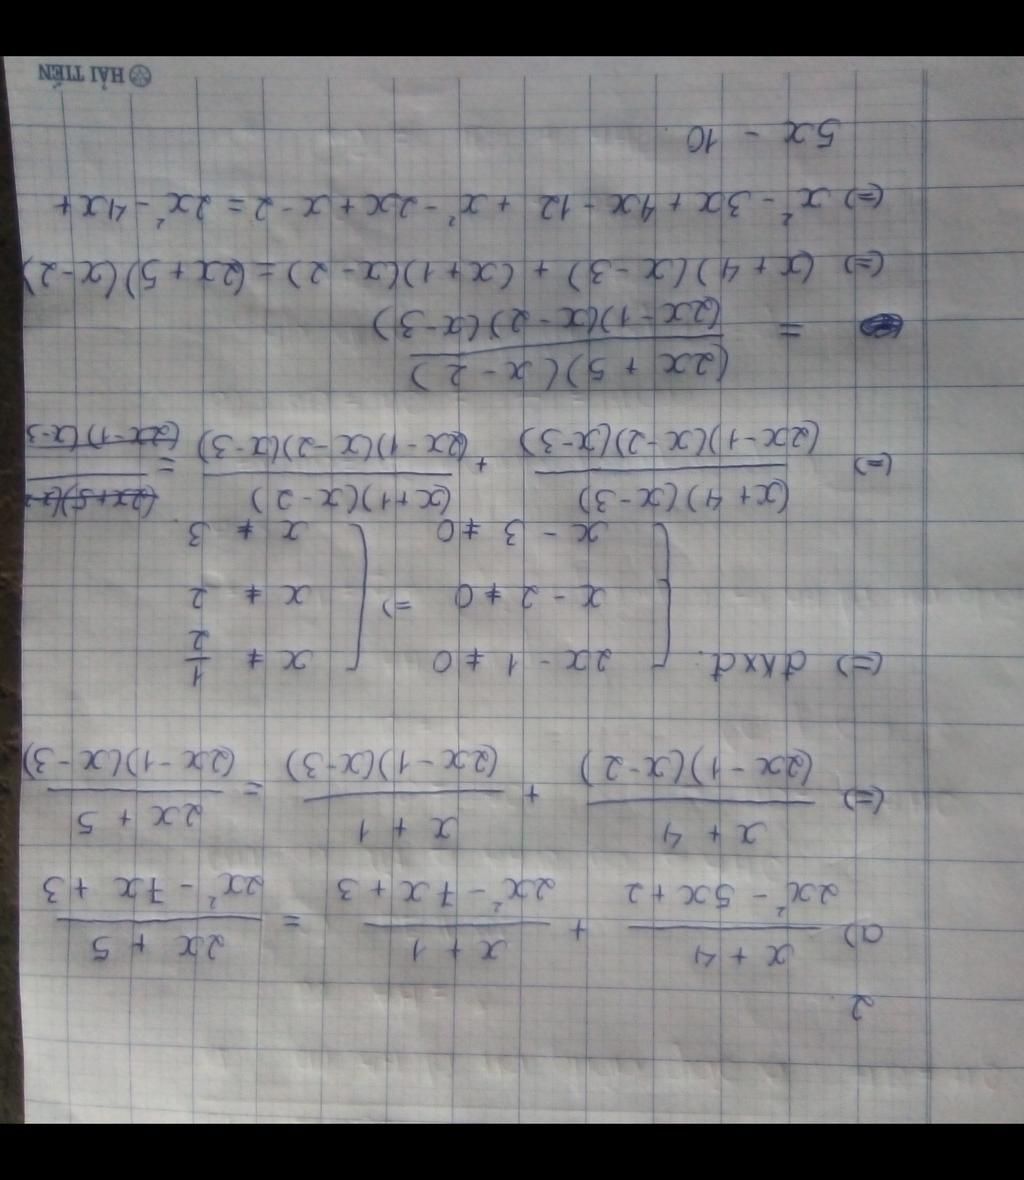 2
a) x + 4 / 2x² - 5x + 2 + x + 1 / 2x² - 7x + 3 = 2x + 5 / 2x² - 7x + 3
(=) x + 4 / (2x - 1)(x - 2) + x + 1 / (2x - 1)(x - 3) = 2x + 5 / (2x - 1)(x - 3)
(=) đkxđ. { 2x - 1 ≠ 0 => { x ≠ 1/2
x - 2 ≠ 0 x ≠ 2
x - 3 ≠ 0 x ≠ 3
(=) (x + 4)(x - 3) / (2x - 1)(x - 2)(x - 3) + (x + 1)(x - 2) / (2x - 1)(x - 2)(x - 3) =
= (2x + 5)(x - 2) / (2x - 1)(x - 2)(x - 3)
(=) (x + 4)(x - 3) + (x + 1)(x - 2) = (2x + 5)(x - 2)
(=) x² - 3x + 4x - 12 + x² - 2x + x - 2 = 2x² - 4x +
5x - 10
HẢI TIẾN